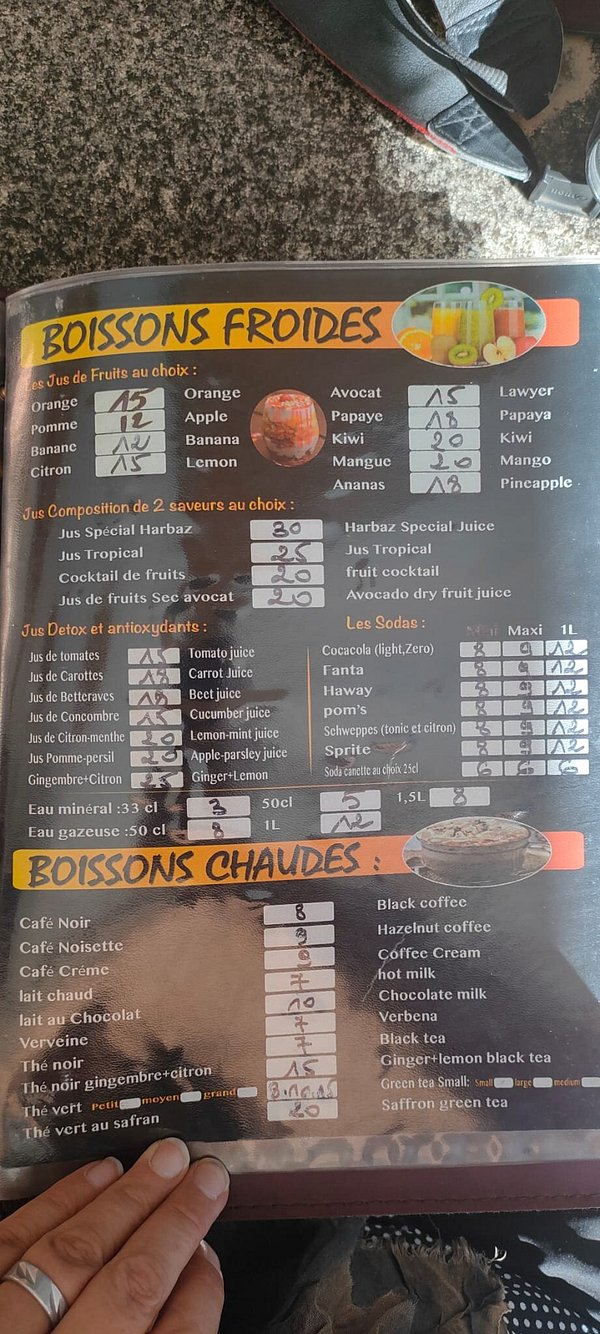 BOISSONS FROIDES
Les Jus de Fruits au choix :
Orange 15 Orange
Pomme 12 Apple
Banane 12 Banana
Citron 15 Lemon
Avocat 15 Lawyer
Papaye 18 Papaya
Kiwi 20 Kiwi
Mangue 20 Mango
Ananas 18 Pineapple
Jus Composition de 2 saveurs au choix :
Jus Spécial Harbaz 30 Harbaz Special Juice
Jus Tropical 25 Jus Tropical
Cocktail de fruits 20 fruit cocktail
Jus de fruits Sec avocat 20 Avocado dry fruit juice
Jus Detox et antioxydants :
Jus de tomates 15 Tomato juice
Jus de Carottes Carrot Juice
Jus de Betteraves Beet juice
Jus de Concombre 15 Cucumber juice
Jus de Citron-menthe Lemon-mint juice
Jus Pomme-persil Apple-parsley juice
Gingembre+Citron Ginger+Lemon
Les Sodas :
Maxi 1L
Cocacola (light,Zero) 8 9 12
Fanta 8 9 12
Haway 8 9 12
pom's 8 9 12
Schweppes (tonic et citron) 8 9 12
Sprite 8 9 12
Soda canette au choix 25cl 6 6 6
Eau minéral :33 cl 3 50cl 5 1,5L 8
Eau gazeuse :50 cl 8 1L 12
BOISSONS CHAUDES :
Café Noir 8 Black coffee
Café Noisette Hazelnut coffee
Café Créme 10 Coffee Cream
lait chaud 7 hot milk
lait au Chocolat 10 Chocolate milk
Verveine 7 Verbena
Thé noir 7 Black tea
Thé noir gingembre+citron 15 Ginger+lemon black tea
Thé vert Petit moyen grand Green tea Small: Small large medium
Thé vert au safran 20 Saffron green tea